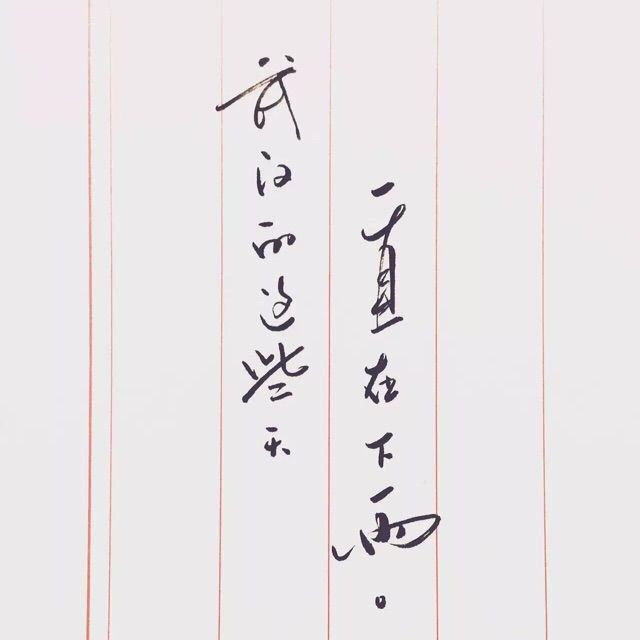 武汉的这些天
一直在下雨。